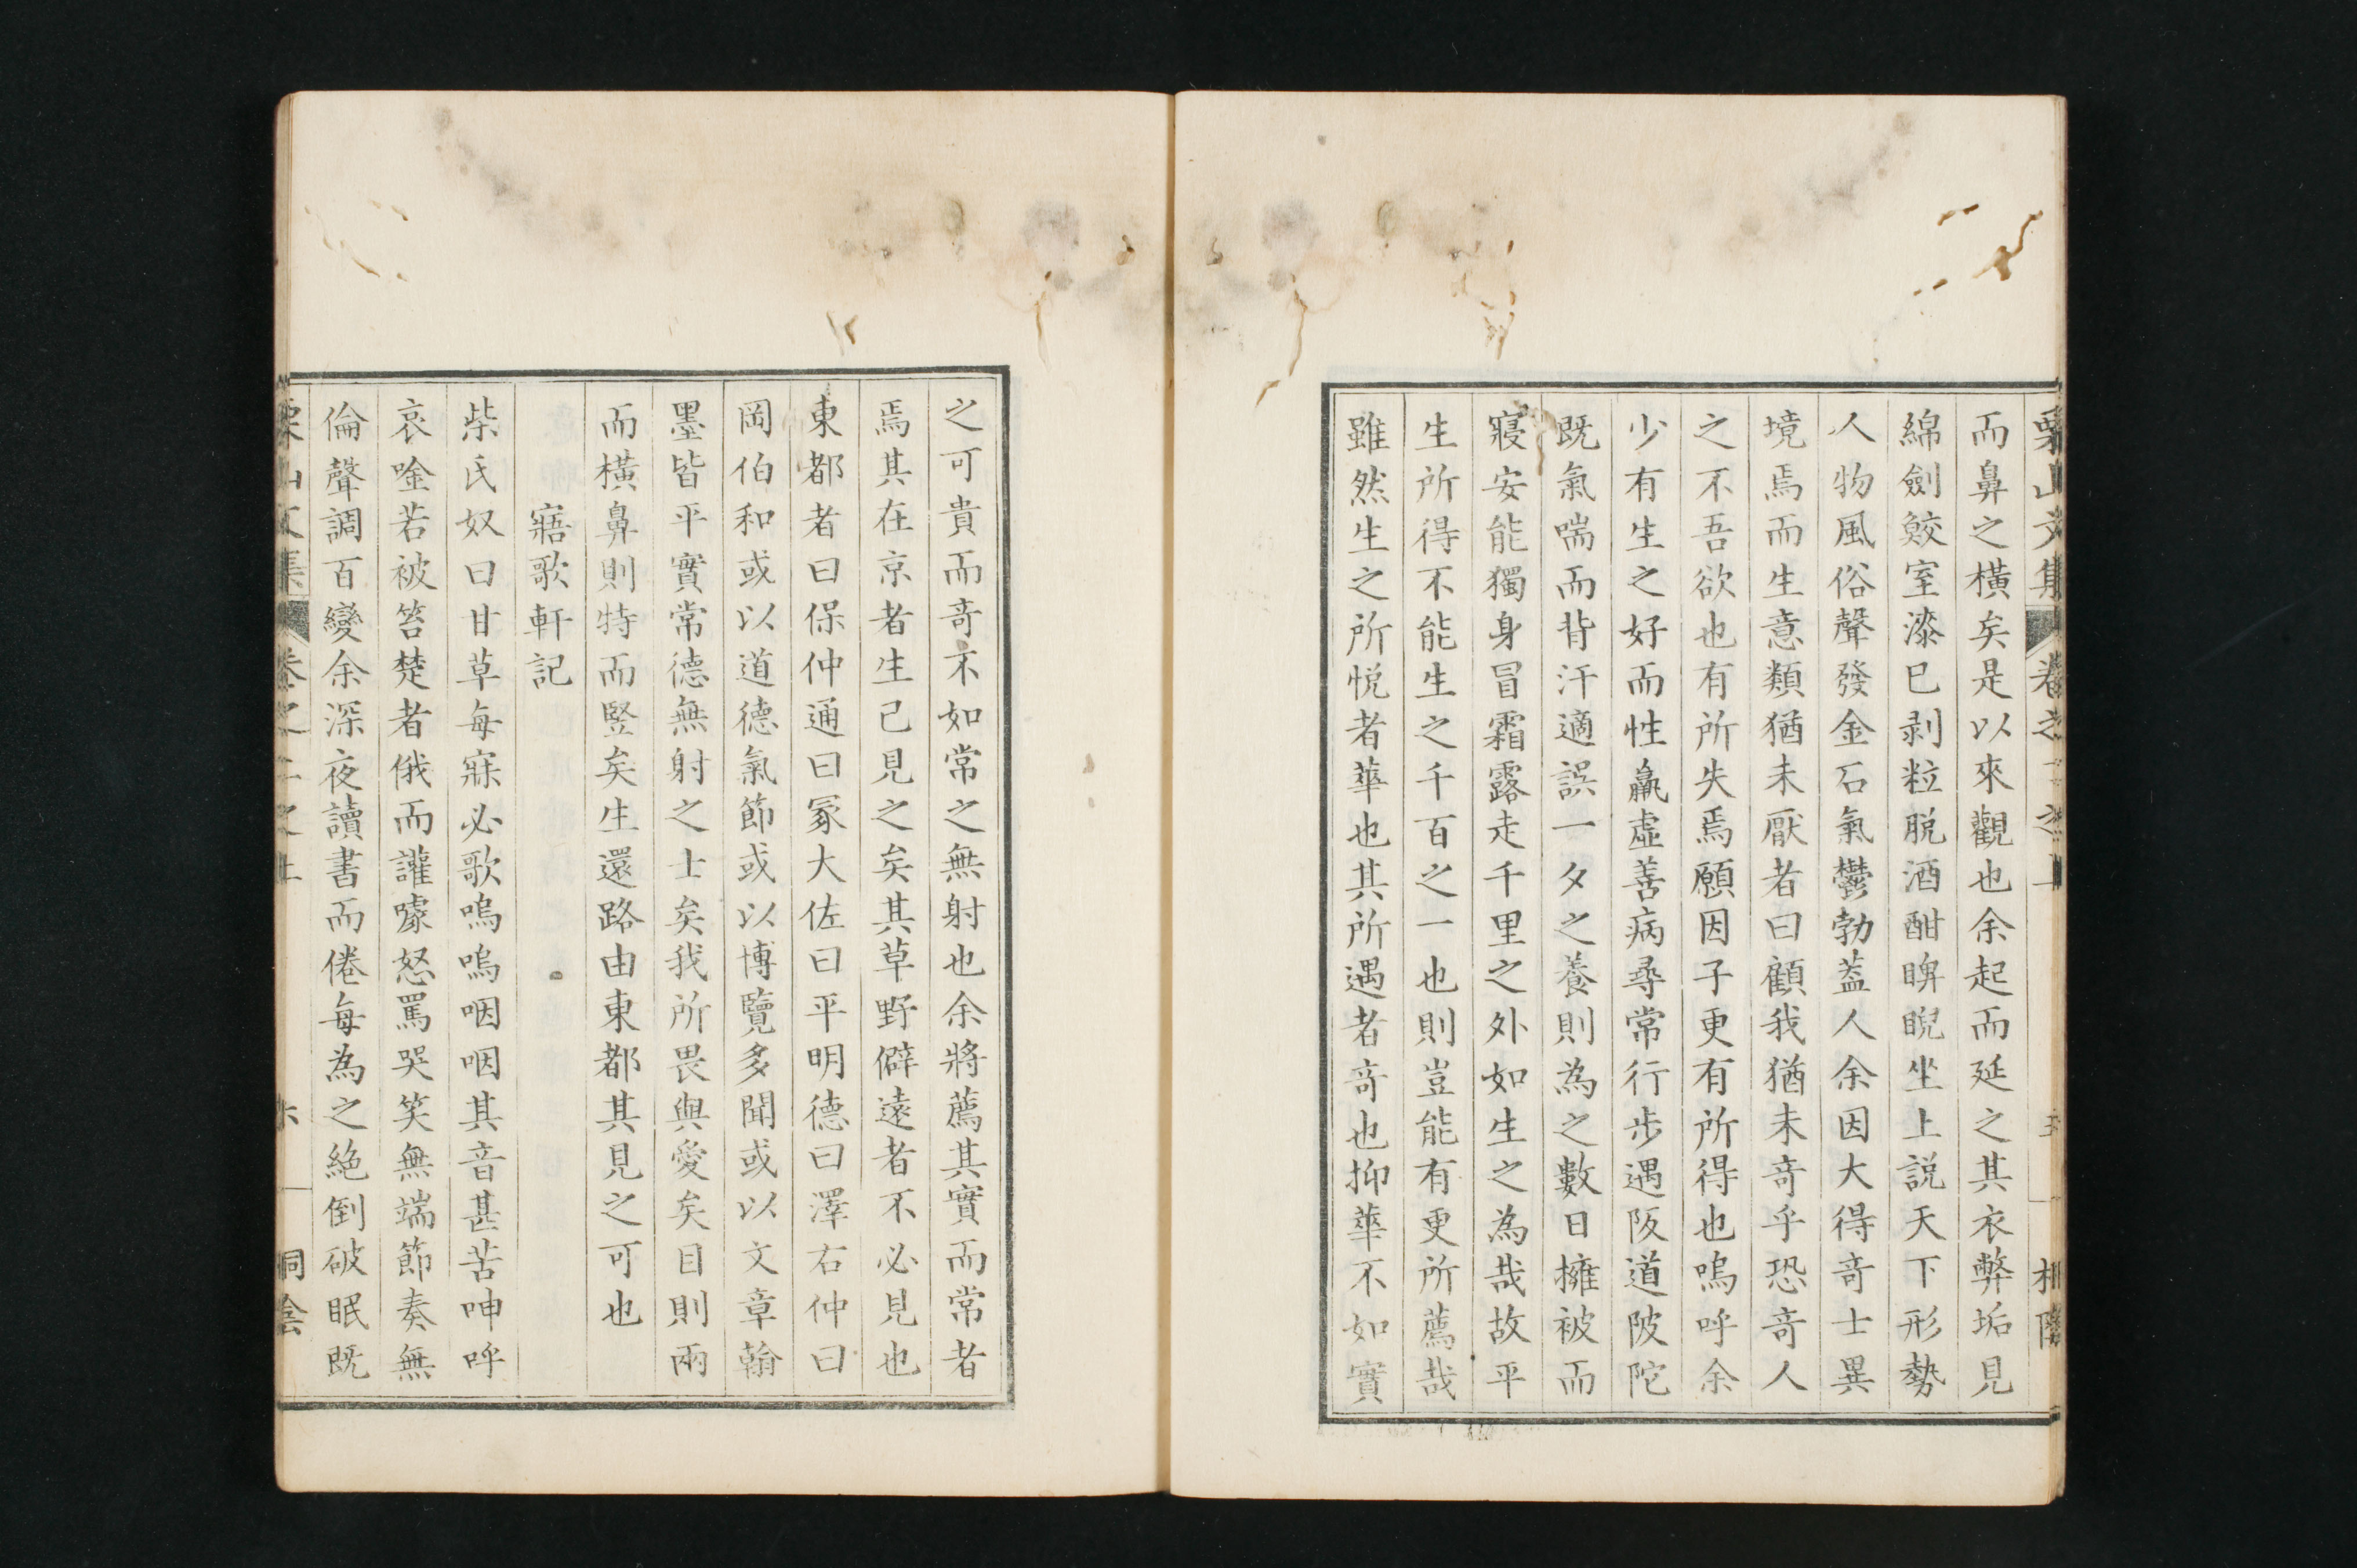 栗山文集 卷之二之上 五 桐陰
而鼻之橫矣是以來觀也余起而延之其衣弊垢見
綿劍鮫室漆已剥粒脱酒酣睥睨坐上説天下形勢
人物風俗聲發金石氣鬱勃葢人余因大得竒士異
境焉而生意類猶未厭者曰顧我猶未竒乎恐竒人
之不吾欲也有所失焉願因子更有所得也嗚呼余
少有生之好而性羸虛善病尋常行步遇阪道陂陀
既氣喘而背汗適誤一夕之養則為之數日擁被而
寢安能獨身冒霜露走千里之外如生之為哉故平
生所得不能生之千百之一也則豈能有更所薦哉
雖然生之所悦者華也其所遇者竒也抑華不如實
之可貴而竒不如常之無射也余將薦其實而常者
焉其在京者生已見之矣其草野僻遠者不必見也
東都者曰保仲通曰冢大佐曰平明德曰澤右仲曰
岡伯和或以道德氣節或以博覽多聞或以文章翰
墨皆平實常德無射之士矣我所畏與愛矣目則兩
而橫鼻則特而竪矣生還路由東都其見之可也
寤歌軒記
柴氏奴曰甘草每寐必歌嗚嗚咽咽其音甚苦呻呼
哀唫若被笞楚者俄而讙噱怒罵哭笑無端節奏無
倫聲調百變余深夜讀書而倦每為之絶倒破眠既
栗山文集 卷之二之上 六 桐陰